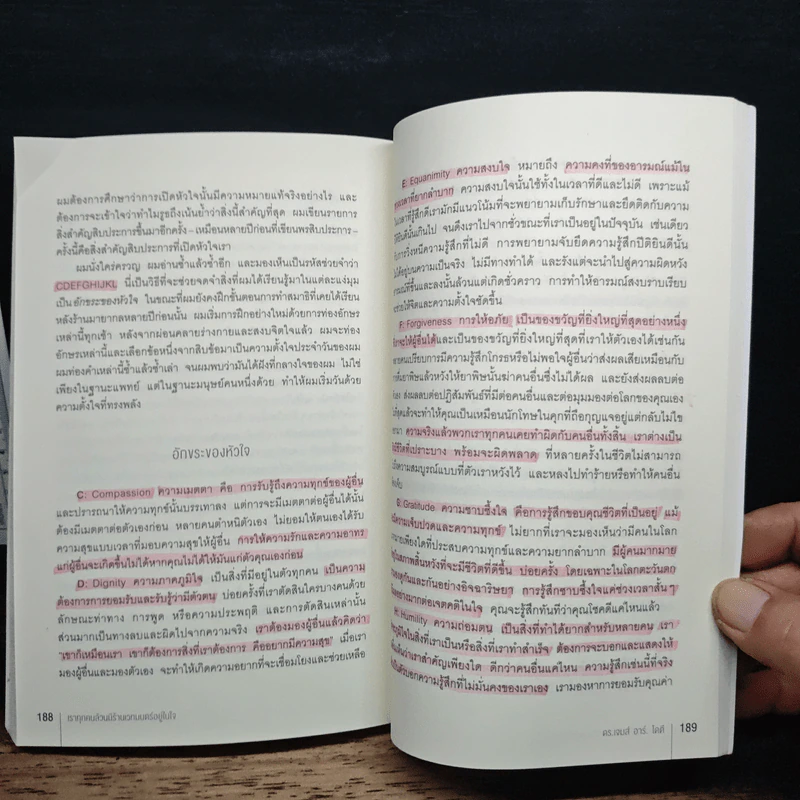 ผมต้องการศึกษาว่าการเปิดหัวใจนั้นมีความหมายแท้จริงอย่างไร และ
ต้องการจะเข้าใจว่าทำไมรูธถึงเน้นย้ำว่าสิ่งนี้สำคัญที่สุด ผมเขียนรายการ
สิ่งสำคัญสิบประการขึ้นมาอีกครั้ง–เหมือนหลายปีก่อนที่เขียนพรสิบประการ–
ครั้งนี้คือสิ่งสำคัญสิบประการที่เปิดหัวใจเรา
ผมนั่งใคร่ครวญ ผมอ่านซ้ำแล้วซ้ำอีก และมองเห็นเป็นรหัสช่วยจำว่า
CDEFGHIJKL นี่เป็นวิธีที่จะช่วยจดจำสิ่งที่ผมได้เรียนรู้มาในแต่ละแง่มุม
เป็น อักขระของหัวใจ ในขณะที่ผมยังคงฝึกขั้นตอนการทำสมาธิที่เคยได้เรียน
หลังร้านมายากลหลายปีก่อนนั้น ผมเริ่มการฝึกอย่างใหม่ด้วยการท่องอักษร
เหล่านี้ทุกเช้า หลังจากผ่อนคลายร่างกายและสงบจิตใจแล้ว ผมจะท่อง
อักษรเหล่านี้และเลือกข้อหนึ่งจากสิบข้อมาเป็นความตั้งใจประจำวันของผม
ผมท่องคำเหล่านี้ซ้ำแล้วซ้ำเล่า จนผมพบว่ามันได้ฝังที่กลางใจของผม ไม่ใช่
เพียงในฐานะแพทย์ แต่ในฐานะมนุษย์คนหนึ่งด้วย ทำให้ผมเริ่มวันด้วย
ความตั้งใจที่ทรงพลัง
อักขระของหัวใจ
C: Compassion ความเมตตา คือ การรับรู้ถึงความทุกข์ของผู้อื่น
และปรารถนาให้ความทุกข์นั้นบรรเทาลง แต่การจะมีเมตตาต่อผู้อื่นได้นั้น
ต้องมีเมตตาต่อตัวเองก่อน หลายคนตำหนิตัวเอง ไม่ยอมให้ตนเองได้รับ
ความสุขแบบเวลาที่มอบความสุขให้ผู้อื่น การให้ความรักและความอาทร
แก่ผู้อื่นจะเกิดขึ้นไม่ได้หากคุณไม่ได้ให้มันแก่ตัวคุณเองก่อน
D: Dignity ความภาคภูมิใจ เป็นสิ่งที่มีอยู่ในตัวทุกคน เป็นความ
ต้องการการยอมรับและรับรู้ว่ามีตัวตน บ่อยครั้งที่เราตัดสินใครบางคนด้วย
ลักษณะท่าทาง การพูด หรือความประพฤติ และการตัดสินเหล่านั้น
ส่วนมากเป็นทางลบและผิดไปจากความจริง เราต้องมองผู้อื่นแล้วคิดว่า
"เขาก็เหมือนเรา เขาก็ต้องการสิ่งที่เราต้องการ คืออยากมีความสุข" เมื่อเรา
มองผู้อื่นและมองตัวเอง จะทำให้เกิดความอยากที่จะเชื่อมโยงและช่วยเหลือ
188 เราทุกคนล้วนมีร้านเวทมนตร์อยู่ในใจ
E: Equanimity ความสงบใจ หมายถึง ความคงที่ของอารมณ์แม้ใน
เวลาที่ยากลำบาก ความสงบใจนั้นใช้ทั้งในเวลาที่ดีและไม่ดี เพราะแม้
ในเวลาที่รู้สึกดีเรามักมีแนวโน้มที่จะพยายามเก็บรักษาและยึดติดกับความ
ปีตินั้นเกินไป จนดึงเราไปจากชั่วขณะที่เราเป็นอยู่ในปัจจุบัน เช่นเดียว
กับการวิ่งหนีความรู้สึกที่ไม่ดี การพยายามจับยึดความรู้สึกปีติยินดีนั้น
ไม่ได้อยู่บนความเป็นจริง ไม่มีทางทำได้ และรังแต่จะนำไปสู่ความผิดหวัง
อารมณ์ที่ขึ้นและลงนั้นล้วนแต่เกิดชั่วคราว การทำให้อารมณ์สงบราบเรียบ
ช่วยให้จิตและความตั้งใจชัดขึ้น
F: Forgiveness การให้อภัย เป็นของขวัญที่ยิ่งใหญ่ที่สุดอย่างหนึ่ง
จะให้ผู้อื่นได้และเป็นของขวัญที่ยิ่งใหญ่ที่สุดที่เราให้ตัวเองได้เช่นกัน
คนเปรียบการมีความรู้สึกโกรธหรือไม่พอใจผู้อื่นว่าส่งผลเสียเหมือนกับ
ยาพิษแล้วหวังให้ยาพิษนั้นฆ่าคนอื่นซึ่งไม่ได้ผล และยังส่งผลลบต่อ
ส่งผลลบต่อปฏิสัมพันธ์ที่มีต่อคนอื่นและต่อมุมมองต่อโลกของคุณเอง
แล้วจะทำให้คุณเป็นเหมือนนักโทษในคุกที่ถือกุญแจอยู่แต่กลับไม่ไข
ความจริงแล้วพวกเราทุกคนเคยทำผิดกับคนอื่นทั้งสิ้น เราต่างเป็น
ชีวิตที่เปราะบาง พร้อมจะผิดพลาด ที่หลายครั้งในชีวิตไม่สามารถ
ความสมบูรณ์แบบที่ตัวเราหวังไว้ และหลงไปทำร้ายหรือทำให้คนอื่น
G: Gratitude ความซาบซึ้งใจ คือการรู้สึกขอบคุณชีวิตที่เป็นอยู่ แม้
มีความเจ็บปวดและความทุกข์ ไม่ยากที่เราจะมองเห็นว่ามีคนในโลก
มากมายเพียงใดที่ประสบความทุกข์และความยากลำบาก มีผู้คนมากมาย
สภาพสิ้นหวังที่จะมีชีวิตที่ดีขึ้น บ่อยครั้ง โดยเฉพาะในโลกตะวันตก
และกันอย่างอิจฉาริษยา การรู้สึกซาบซึ้งใจแค่ช่วงเวลาสั้นๆ
อย่างมากต่อเจตคติในใจ คุณจะรู้สึกทันทีว่าคุณโชคดีแค่ไหนแล้ว
H: Humility ความถ่อมตน เป็นสิ่งที่ทำได้ยากสำหรับหลายคน เรา
ภูมิใจในสิ่งที่เราเป็นหรือสิ่งที่เราทำสำเร็จ ต้องการจะบอกและแสดงให้
เห็นว่าเราสำคัญเพียงใด ดีกว่าคนอื่นแค่ไหน ความรู้สึกเช่นนี้ที่จริง
เป็นตัวบอกความรู้สึกที่ไม่มั่นคงของเราเอง เรามองหาการยอมรับคุณค่า
ดร.เจมส์ อาร์. โดตี 189